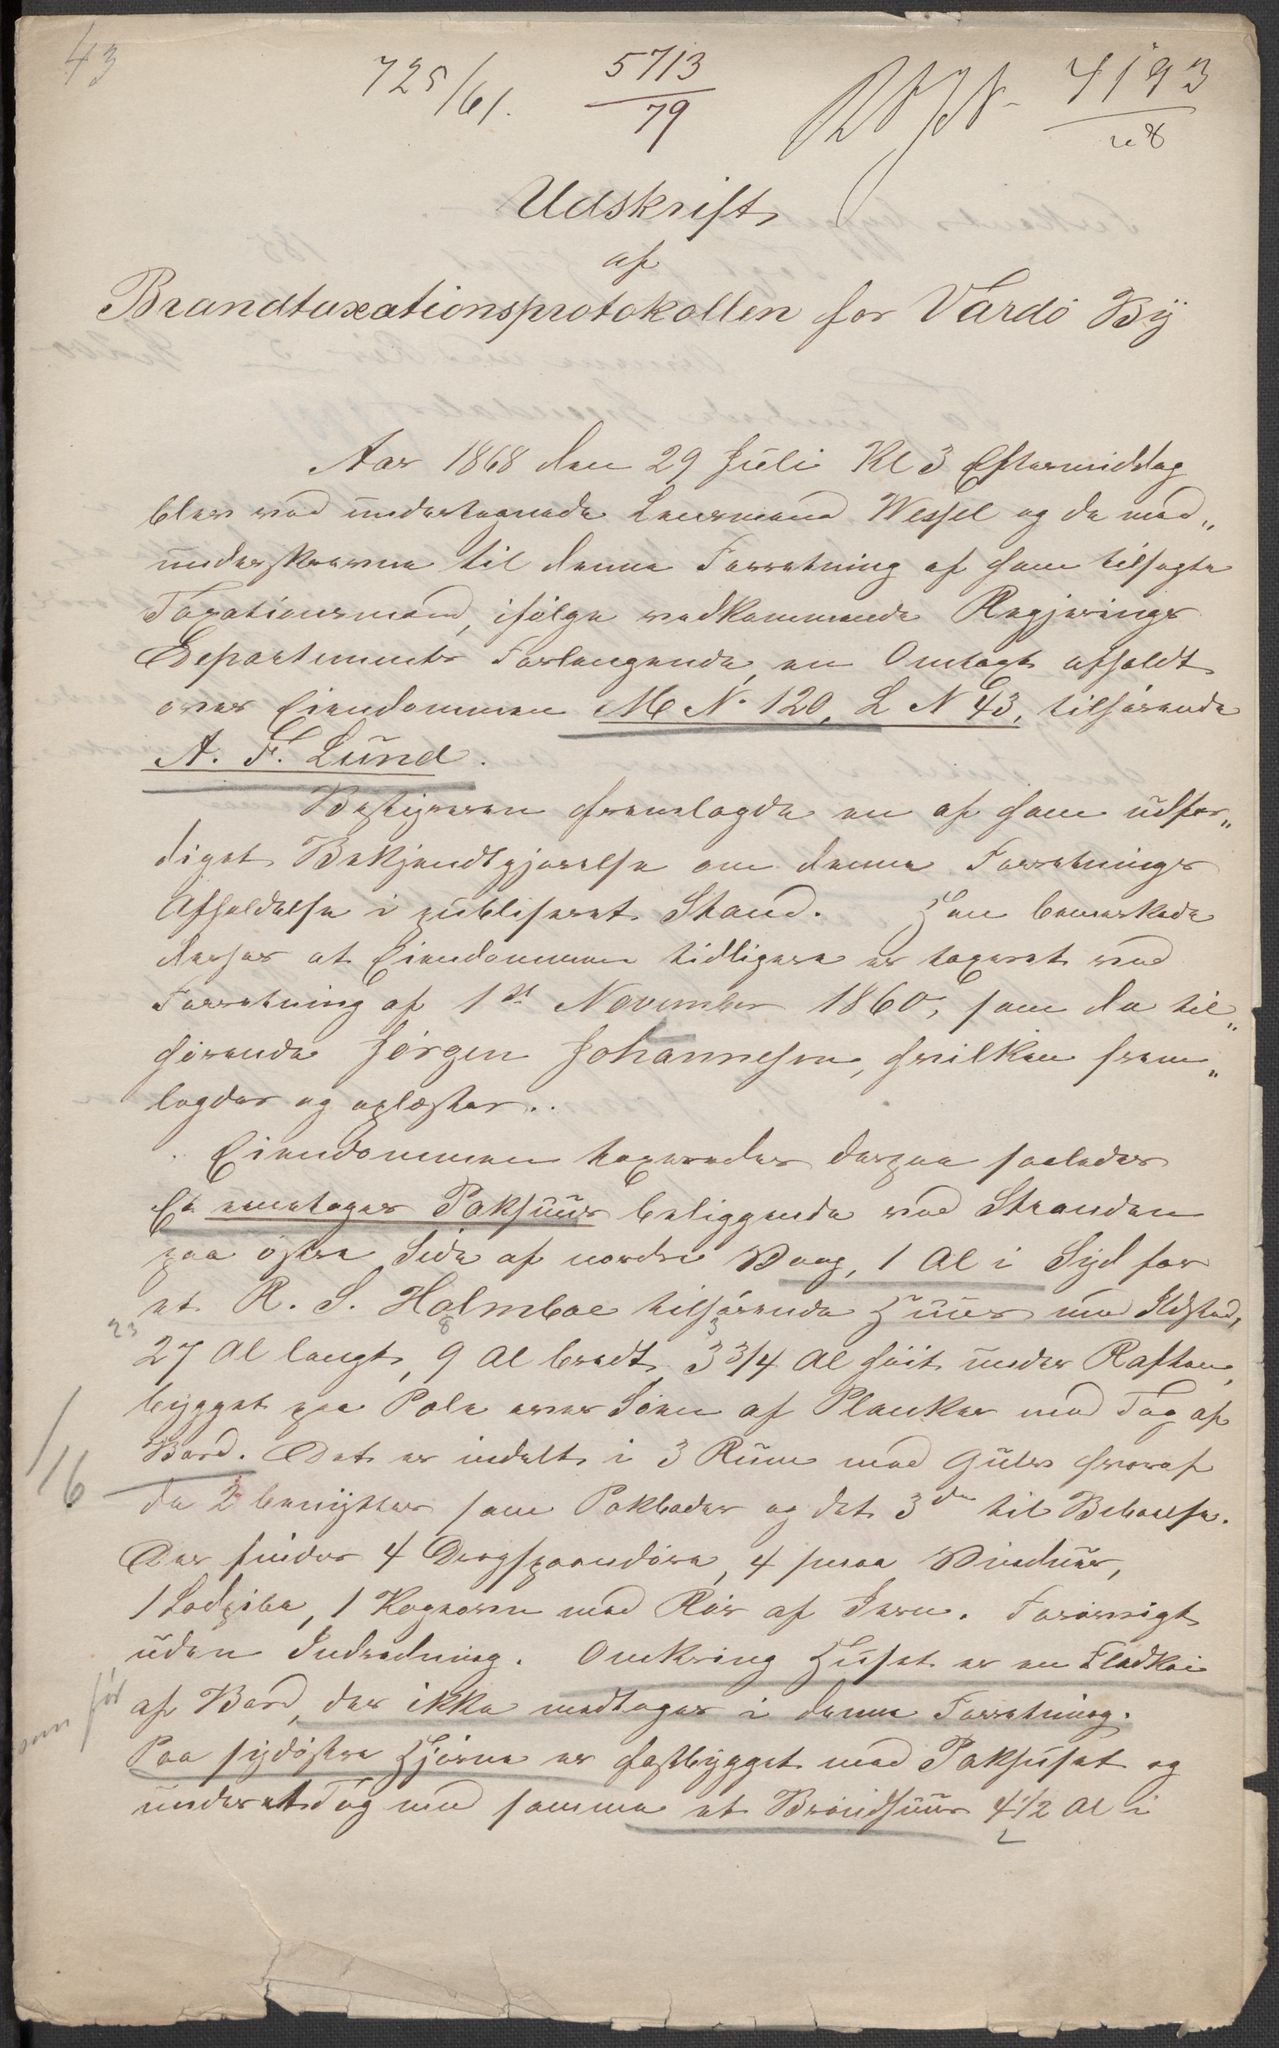 43
725/61.
5713
79
4193
Udskrift
af
Brandtaxationsprotokollen for Vardö By
Aar 1868 den 29 Juli Kl 3 Eftermiddag
blev ved undertegnede Lensmand Wessel og de med„
underskrevne til denne Forretning af ham tilsagte
Taxationsmænd, ifölge vedkommende Regjerings
Departements Forlangende, en Omtaxt afholdt
over Eiendommen M N. 120, L N 43, tilhörende
A. F. Lund.
Bestyreren fremlagde en af ham udfær„
diget Bekjendtgjørelse om denne Forretnings
Afholdelse i publiseret Stand. Han bemærkede
derhos at Eiendommen tidligere er taxeret ved
Forretning af 1st November 1860, som da til„
hörende Jörgen Johannesen, hvilken frem„
lagdes og oplæstes.
Eiendommen taxeredes derpaa saaledes
Et eenetages Pakhuus beliggende ved Stranden
paa östre Side af nordre Vaag, 1 Al i Syd for
et R. S. Holmboe tilhörende Huus med Ildsted,
23 8 3
27 Al langt, 9 Al bredt, 3 3/4 Al höit under Raften,
bygget paa Pæle over Söen af Planker med Tag af
Bord. Det er indelt i 3 Rum med Gulv hvoraf
1/16
de 2 benyttes som Pakboder og det 3die til Beboelse.
Der findes 4 Dragspaandöre, 4 smaa Vinduer,
1 Ladpibe, 1 Kogeovn med Rör af Jern. Forövrigt
uden Indredning. Omkring Huset er en Fladkai
som för
af Bord, der ikke medtages i denne Forretning.
Paa sydöstre Hjörne er fastbygget med Pakhuset og
under et Tag med samme et Bröndhuus 4 1/2 Al i